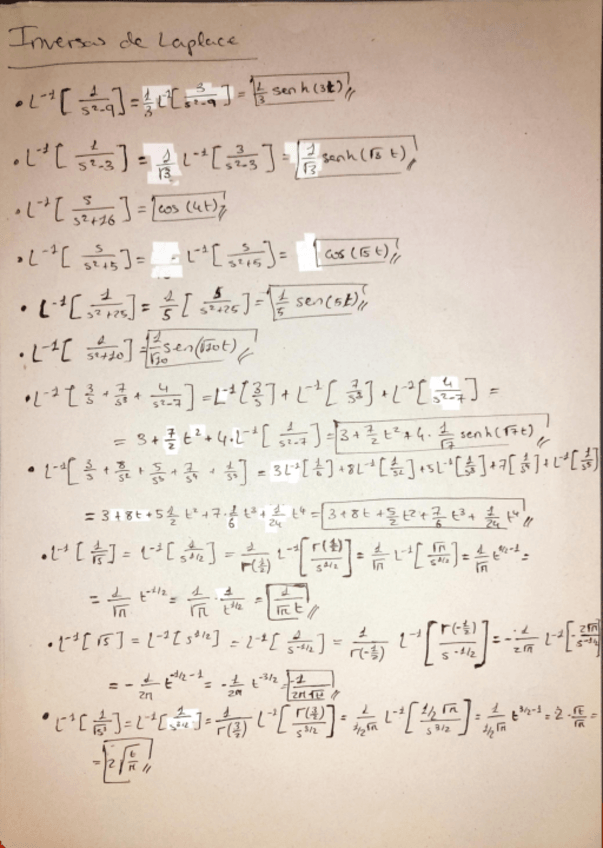 Inversas de Laplace
• L⁻¹[1/(s²-9)] = 1/3 L⁻¹[3/(s²-9)] = 1/3 senh(3t)//
• L⁻¹[1/(s²-3)] = 1/√3 L⁻¹[3/(s²-3)] = 1/√3 senh(√3 t)//
• L⁻¹[s/(s²+16)] = cos(4t)//
• L⁻¹[s/(s²+5)] = L⁻¹[s/(s²+5)] = cos(√5 t)//
• L⁻¹[1/(s²+25)] = 1/5 [5/(s²+25)] = 1/5 sen(5t)//
• L⁻¹[1/(s²+10)] = 1/√10 sen(√10 t)//
• L⁻¹[3/s + 7/s³ + 4/(s²-7)] = L⁻¹[3/s] + L⁻¹[7/s³] + L⁻¹[4/(s²-7)] =
= 3 + 7/2 t² + 4·L⁻¹[1/(s²-7)] = 3 + 7/2 t² + 4· 1/√7 senh(√7 t)//
• L⁻¹[3/s + 8/s² + 5/s³ + 7/s⁴ + 1/s⁵] = 3L⁻¹[1/s] + 8L⁻¹[1/s²] + 5L⁻¹[1/s³] + 7[1/s⁴] + L⁻¹[1/s⁵]
= 3 + 8t + 5 1/2 t² + 7· 1/6 t³ + 1/24 t⁴ = 3 + 8t + 5/2 t² + 7/6 t³ + 1/24 t⁴//
• L⁻¹[1/√s] = L⁻¹[1/s^(1/2)] = 1/Γ(1/2) L⁻¹[Γ(1/2)/s^(1/2)] = 1/√π L⁻¹[√π/s^(1/2)] = 1/√π t^(1/2-1) =
= 1/√π t^(-1/2) = 1/√π · 1/t^(1/2) = 1/√π t//
• L⁻¹[√s] = L⁻¹[s^(1/2)] = L⁻¹[1/s^(-1/2)] = 1/Γ(-1/2) L⁻¹[Γ(-1/2)/s^(-1/2)] = - 1/2√π L⁻¹[- 2√π/s^(-1/2)]
= - 1/2π t^(-1/2-1) = - 1/2π t^(-3/2) =
• L⁻¹[1/√s³] = L⁻¹[1/s^(3/2)] = 1/Γ(3/2) L⁻¹[Γ(3/2)/s^(3/2)] = 1/(1/2√π) L⁻¹[1/2 √π/s^(3/2)] = 1/(1/2√π) t^(3/2-1) = 2· √t/√π =
= 2√(t/π)//